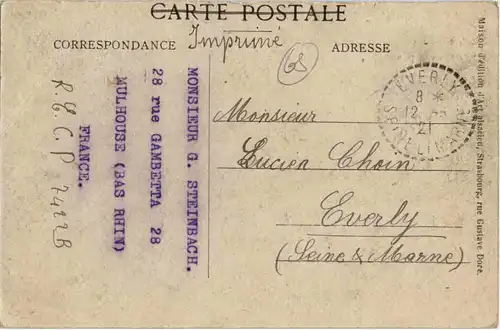 CARTE POSTALE
CORRESPONDANCE
Imprimé
ADRESSE
MONSIEUR G. STEINBACH.
28 rue GAMBETTA 28
MULHOUSE (BAS RHIN)
FRANCE.
68
EVERLY
8 *
12
21
Monsieur
Lucien Choin
Everly
(Seine & Marne)
Maison d'édition d'Art alsacien, Strasbourg, rue Gustave Doré.